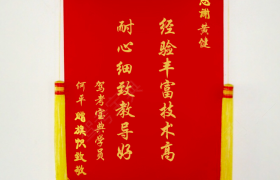 感谢黄健
经验丰富技术高
耐心细致教导好
驾考宝典学员
何平赠旗致敬